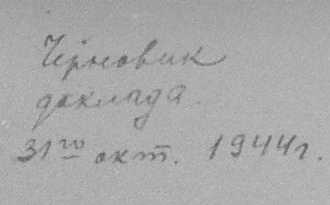 Черновик
доклада.
31го окт. 1944г.